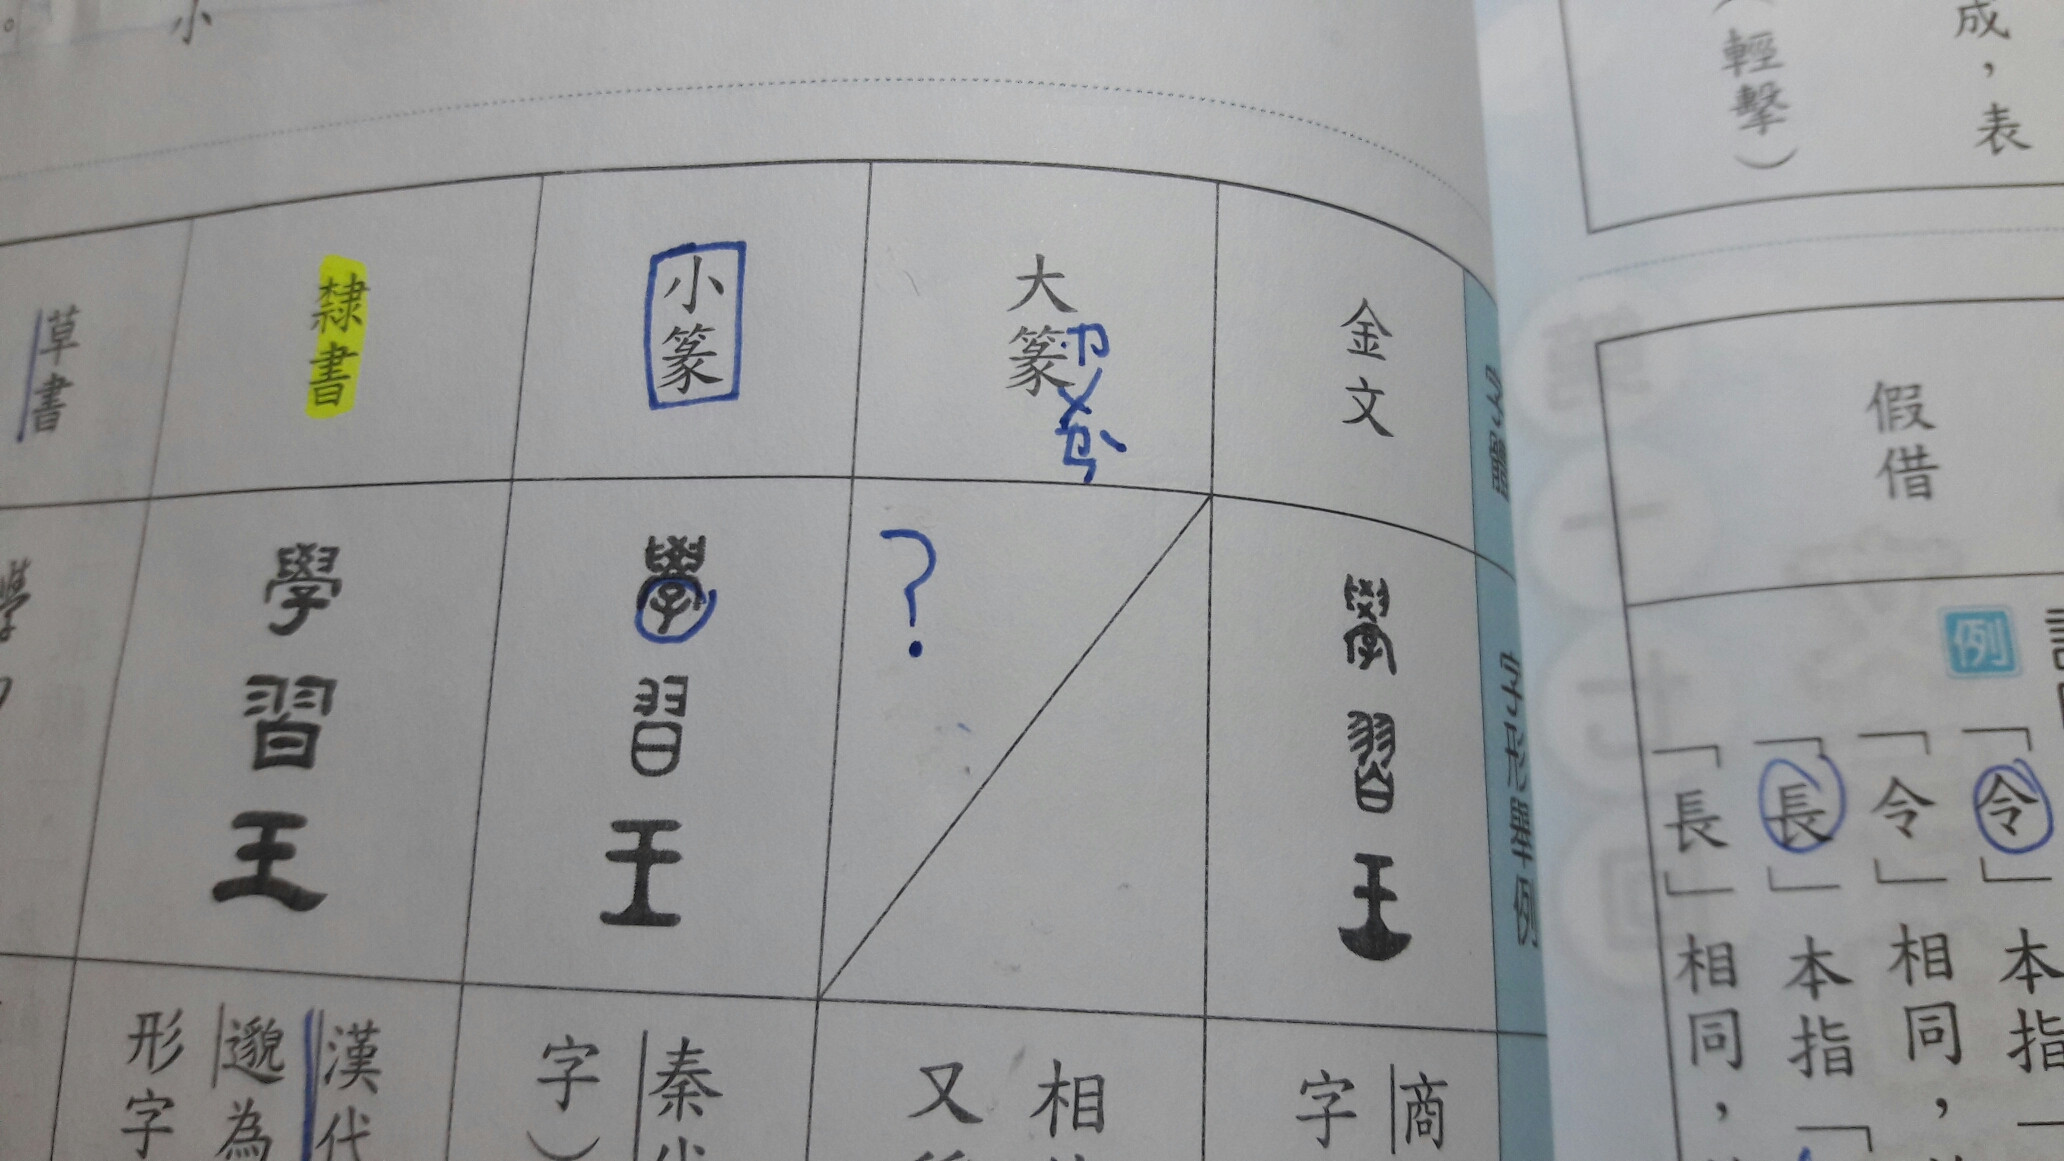 成，表
（輕擊）
假借
例
「令」本指
「令」相同，
「長」本指「
「長」相同，
小
字體
字形舉例
金文
學習王
商
字
大篆ㄓㄨㄢˋ
？
相
又
小篆
學習王
秦代
字）
隸書
學習王
漢代
邈為
形字
草書
學